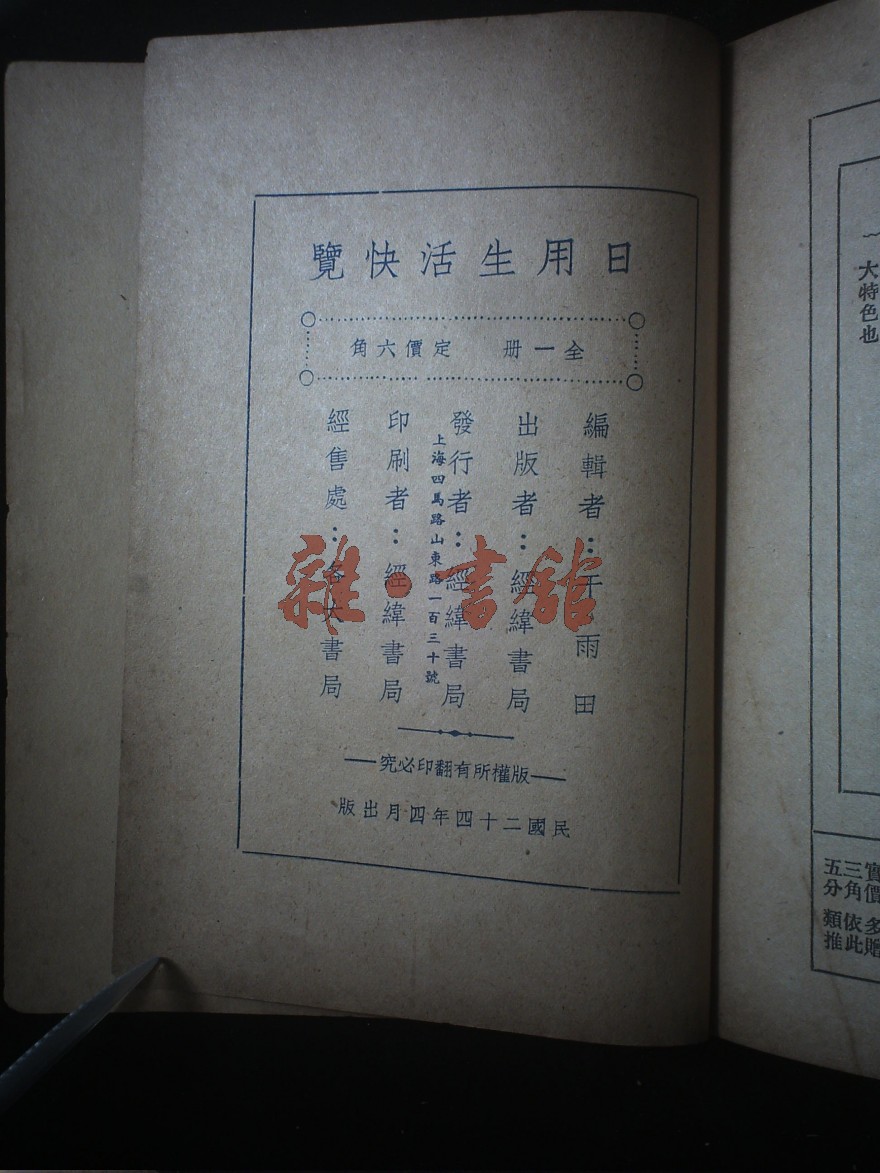 日用生活快覽
全一册 定價六角
編輯者：于雨田
出版者：經緯書局
發行者：經緯書局
上海四馬路山東路一百三十號
印刷者：經緯書局
經售處：各大書局
版權所有翻印必究
民國二十四年四月出版
雜·書舘
大特色也
實價
三角
五分
多贈
依此
類推